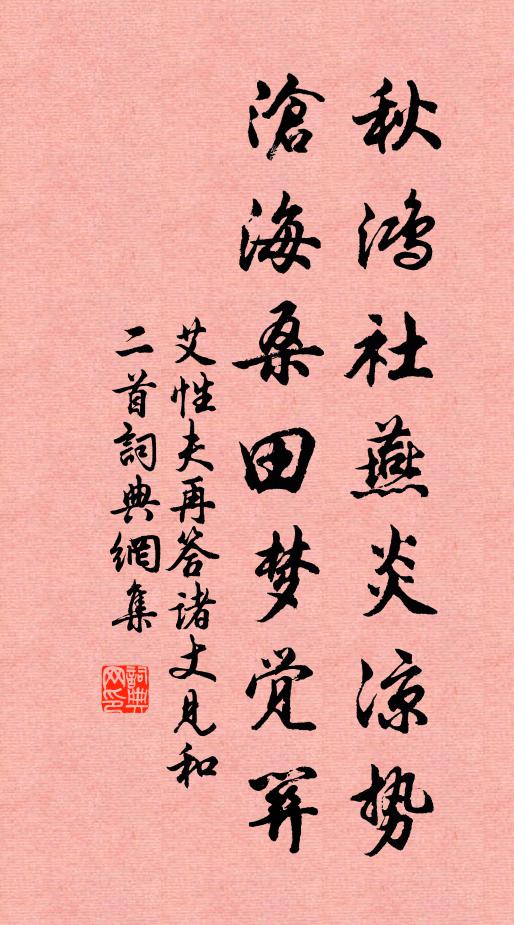 秋鸿社燕炎涼势
滄海桑田梦觉关
艾性夫再答诸丈见和
二首詞典網集
詞典网印